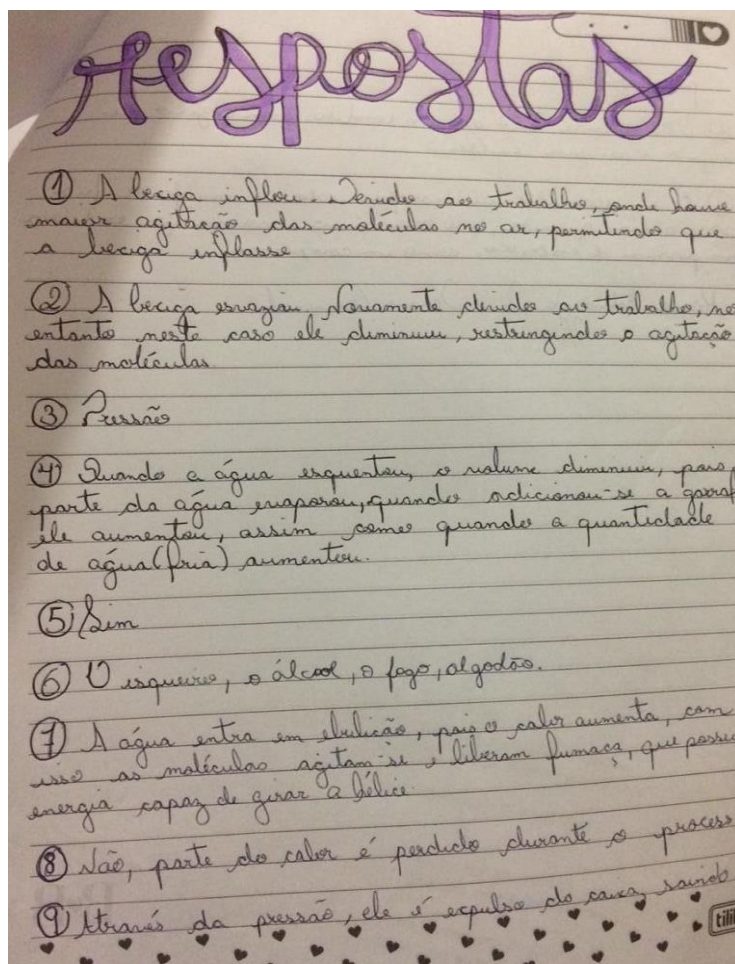 respostas
① A bexiga inflou. Devido ao trabalho, onde houve
maior agitação das moléculas no ar, permitindo que
a bexiga inflasse
② A bexiga esvaziou. Novamente devido ao trabalho, no
entanto neste caso ele diminuiu, restringindo a agitação
das moléculas
③ Pressão
④ Quando a água esquentou, o volume diminuiu, pois
parte da água evaporou, quando adicionou-se a garraf
ele aumentou, assim como quando a quantidade
de água (fria) aumentou.
⑤ Sim
⑥ O isqueiro, o álcool, o fogo, algodão.
⑦ A água entra em ebulição, pois o calor aumenta, com
isso as moléculas agitam-se e liberam fumaça, que possu
energia capaz de girar a hélice.
⑧ Não, parte do calor é perdido durante o process
⑨ Através da pressão, ele é expulso do caixa, saindo
tili